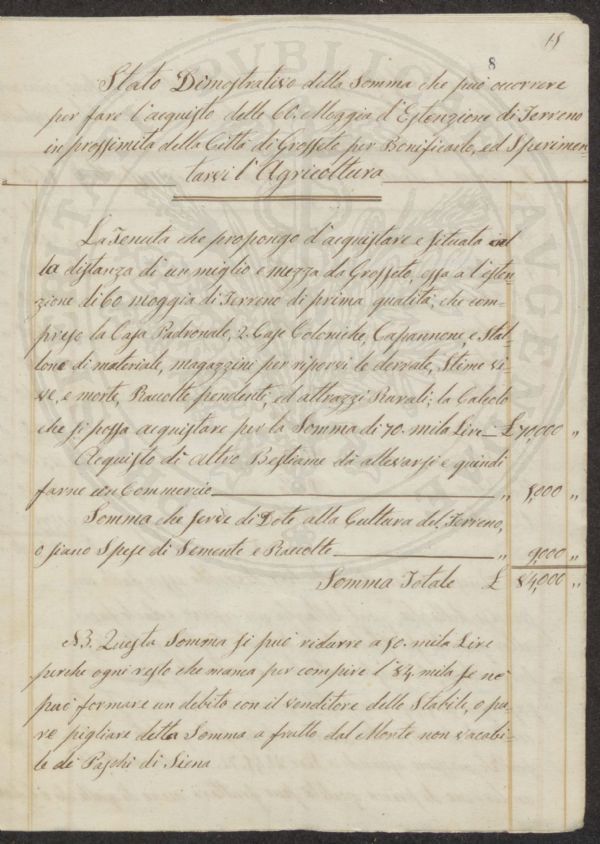 15
8
Stato Dimostrativo della Somma che può occorrere
per fare l'acquisto delle 60. Moggia d'Estenzione di Terreno
in prossimita della Città di Grosseto per Bonificarlo, ed Sperimen-
tarvi l'Agricoltura
La Tenuta che propongo d'acquistare e situata
la distanza di un miglio e mezza da Grosseto, essa a l'esten-
zione di 60 moggia di Terreno di prima qualità, che com-
preso la Casa Padronale, 2. Case Coloniche, Capannone, e Stal-
lone di materiale, magazzini per riporvi le derrate, Stime vi-
ve, e morte, Raccolte pendente, ed attrazzi Rurali; la Calcolo
che si possa acquistare per la Somma di 70. mila Lire £ 70,000 "
Acquisto di altro Bestiame da allevarsi e quindi
farne un Commercio " 5,000 "
Somma che serve di Dote alla Cultura del Terreno,
o siano Spese di Semente e Raccolte " 9,000 "
Somma Totale £ 84,000 "
NB. Questa Somma si può ridurre a 50. mila Lire
perche ogni resto che manca per compire l'84. mila se ne
può formare un debito con il venditore dello Stabile, o pu-
re pigliare detta Somma a frutto dal Monte non vacabi-
le de Paschi di Siena
PVBLICA
AVGENTVR